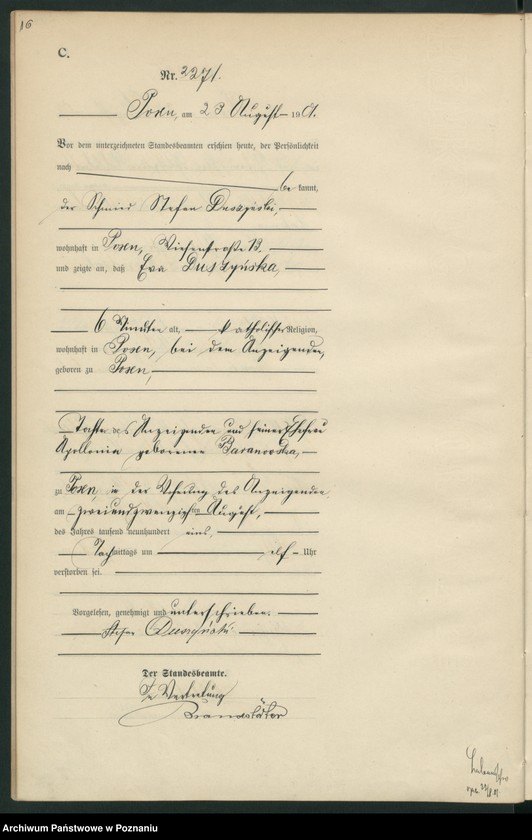 16
C.
Nr. 2271.
Posen, am 23 August 1901.
Vor dem unterzeichneten Standesbeamten erschien heute, der Persönlichkeit
nach
bekannt,
der Schmied Stefan Duszyński,
wohnhaft in Posen, 13,
und zeigte an, daß Eva Duszyńska,
6 Stunden alt, katholischer Religion,
wohnhaft in Posen, bei dem Anzeigenden,
geboren zu Posen,
Tochter des Anzeigenden und seiner Ehefrau
Apollonia geborenen Baranowska,
zu Posen, in der Wohnung des Anzeigenden,
am zweiundzwanzigsten August,
des Jahres tausend neunhundert eins,
Nachmittags um elf Uhr
verstorben sei.
Vorgelesen, genehmigt und unterschrieben.
Stefan Duszyński
Der Standesbeamte.
In Vertretung
Archiwum Państwowe w Poznaniu